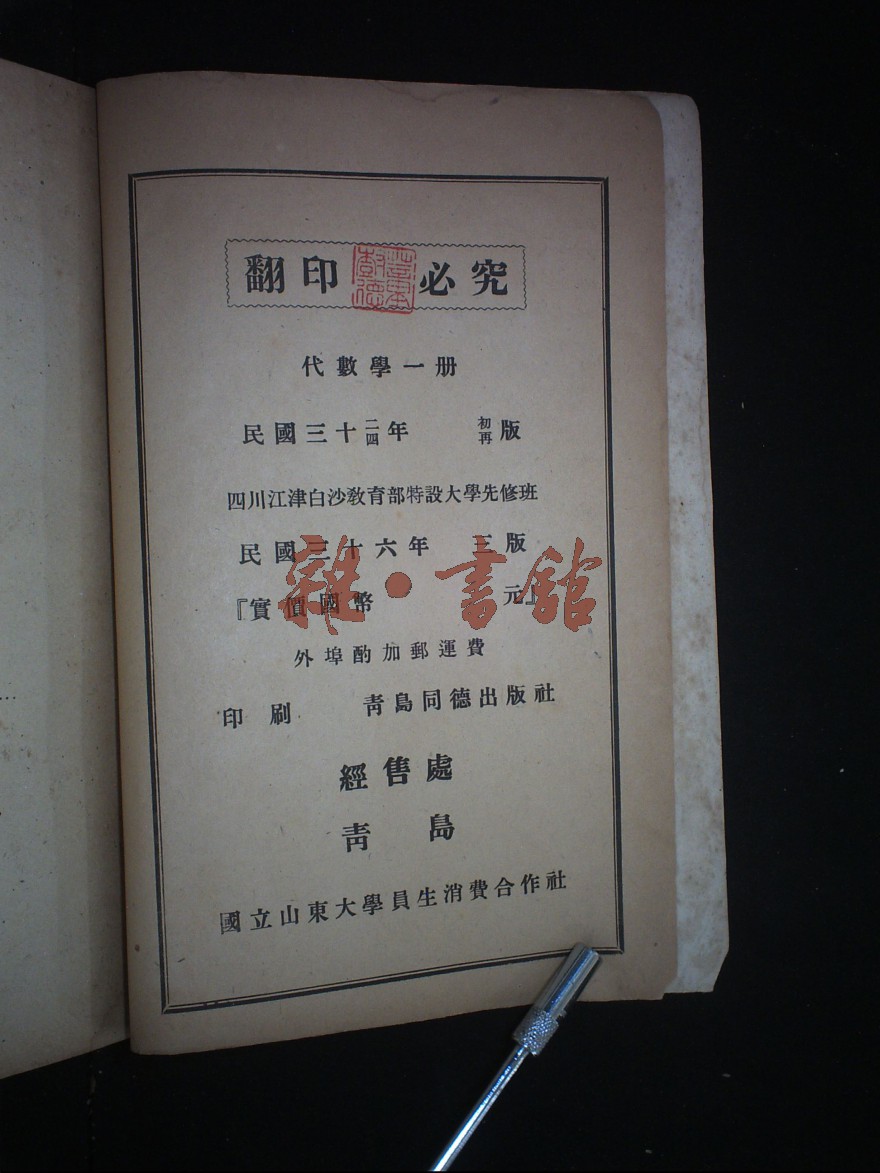 翻印必究
代數學一册
民國三十二四年 初再版
四川江津白沙敎育部特設大學先修班
民國三十六年 三版
『實價國幣 元』
雜·書舘
外埠酌加郵運費
印刷 靑島同德出版社
經售處
靑島
國立山東大學員生消費合作社